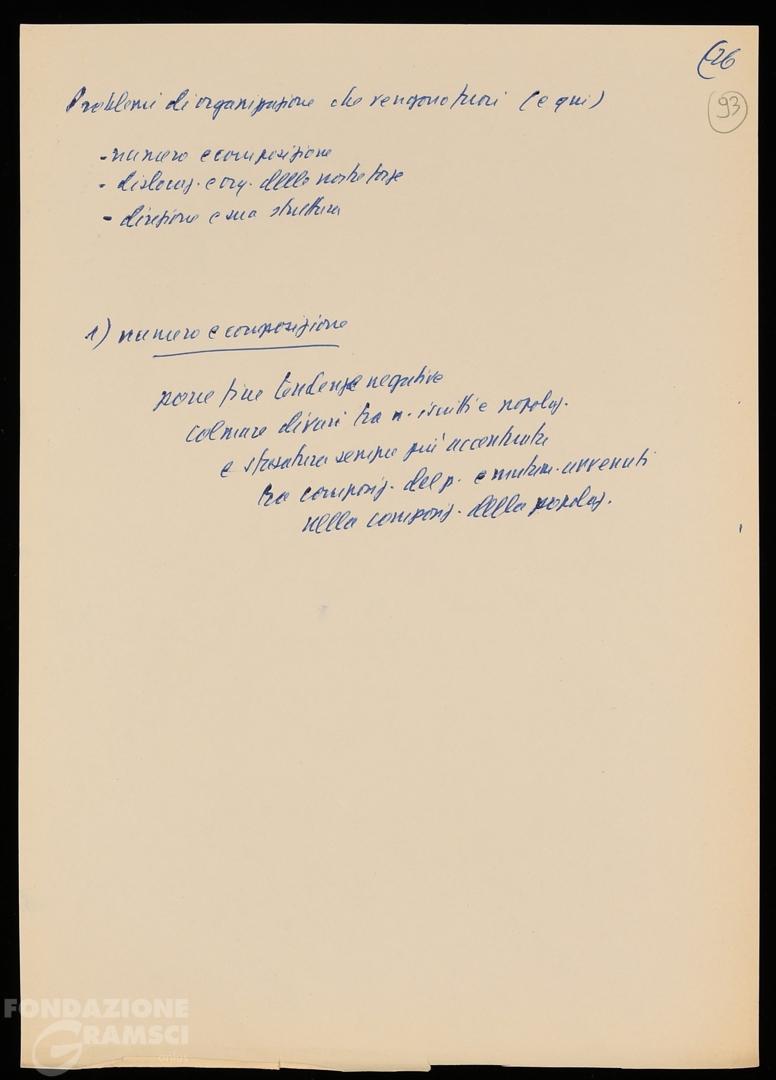 26
93
Problemi di organizzazione che vengono fuori (e qui)
- numero e composizione
- dislocaz. e org. delle nostre forze
- direzione e sua struttura
1) numero e composizione
porre fine tendenze negative
colmare divari tra n. iscritti e popolaz.
e sfasatura sempre più accentuata
tra composiz. del p. e mutam. avvenuti
nella composiz. della popolaz.
FONDAZIONE
GRAMSCI
onlus